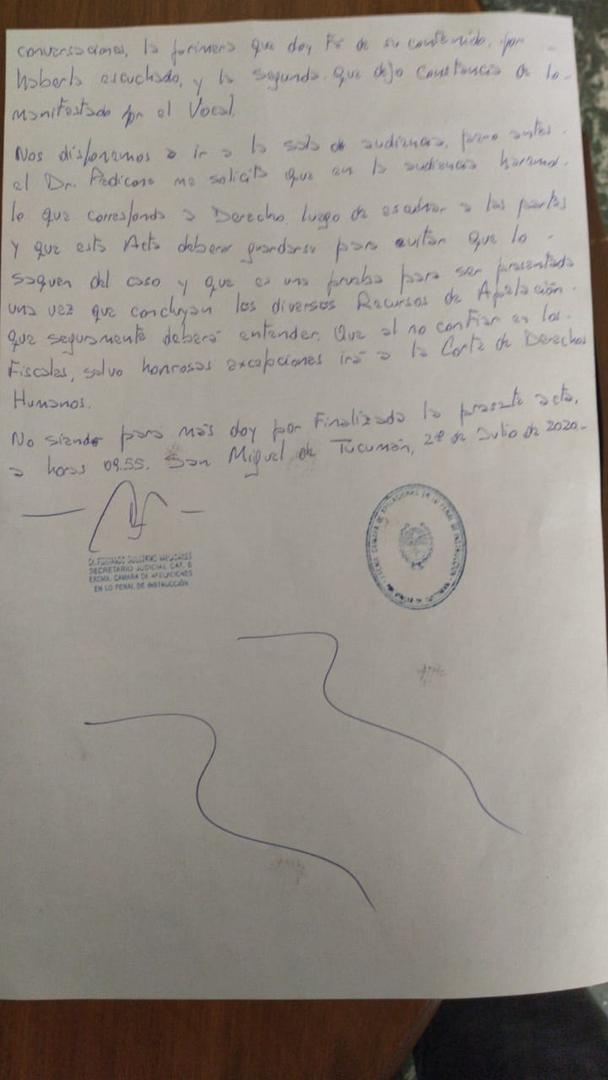 conversaciones, la primera que doy Fe de su contenido, por
haberla escuchado, y la segunda que dejo constancia de lo
manifestado por el Vocal.
Nos disponemos a ir a la sala de audiencia, pero antes
el Dr. Pedicone me solicita que en la audiencia haremos
lo que corresponda a Derecho luego de escuchar a las partes
y que esta Acta deberá guardarse para evitar que lo
saquen del caso y que es una prueba para ser presentada
una vez que concluyan los diversos Recursos de Apelación
que seguramente deberá entender. Que al no confiar en los
Fiscales, salvo honrosas excepciones irá a la Corte de Derechos
Humanos.
No siendo para más doy por Finalizada la presente acta,
a horas 09.55. San Miguel de Tucumán, de Julio de 2020.-
SECRETARIO JUDICIAL CAT. B
EXCMA. CAMARA DE APELACIONES
EN LO PENAL DE INSTRUCCIÓN
CAMARA DE APELACIONES EN LO PENAL DE INSTRUCCION